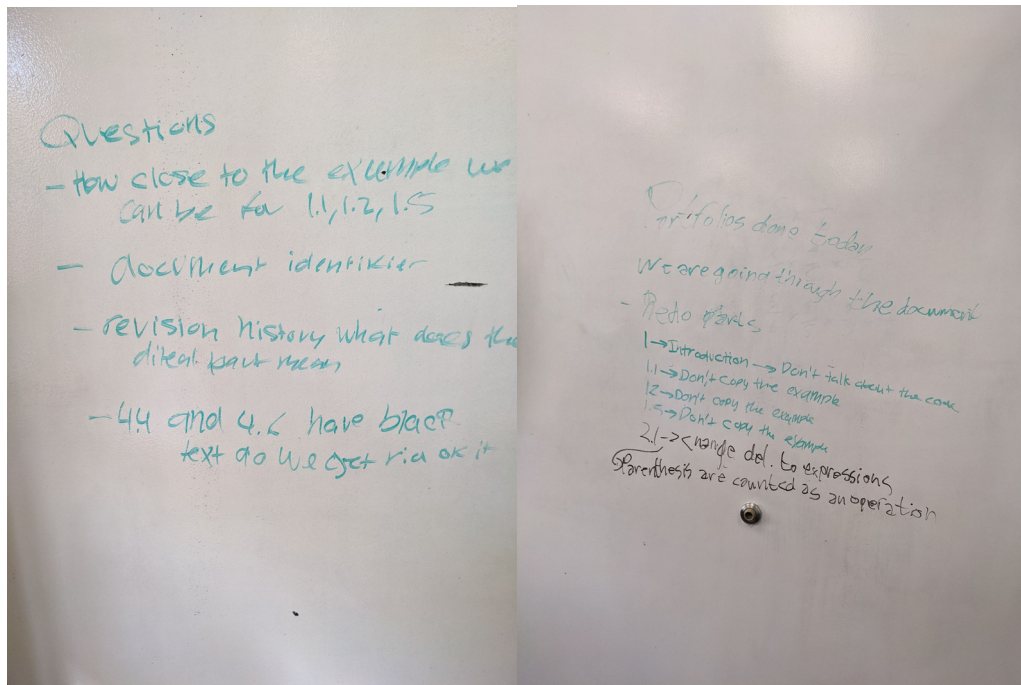 Questions
- How close to the example we
can be for 1.1, 1.2, 1.5
- document identifier
- revision history what does the
part mean
- 4.4 and 4.6 have black
text do we get rid of it
Portfolios done today
We are going through the document
- Redo parts
1 → Introduction → Don't talk about the code
1.1 → Don't copy the example
1.2 → Don't copy the example
1.5 → Don't copy the example
2.1 -> change def. to expressions
Parenthesis are counted as an operation